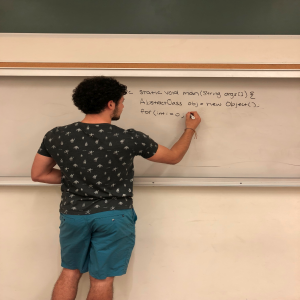 static void main(String args[]) {
AbstractClass obj = new Object();
for(int i = 0